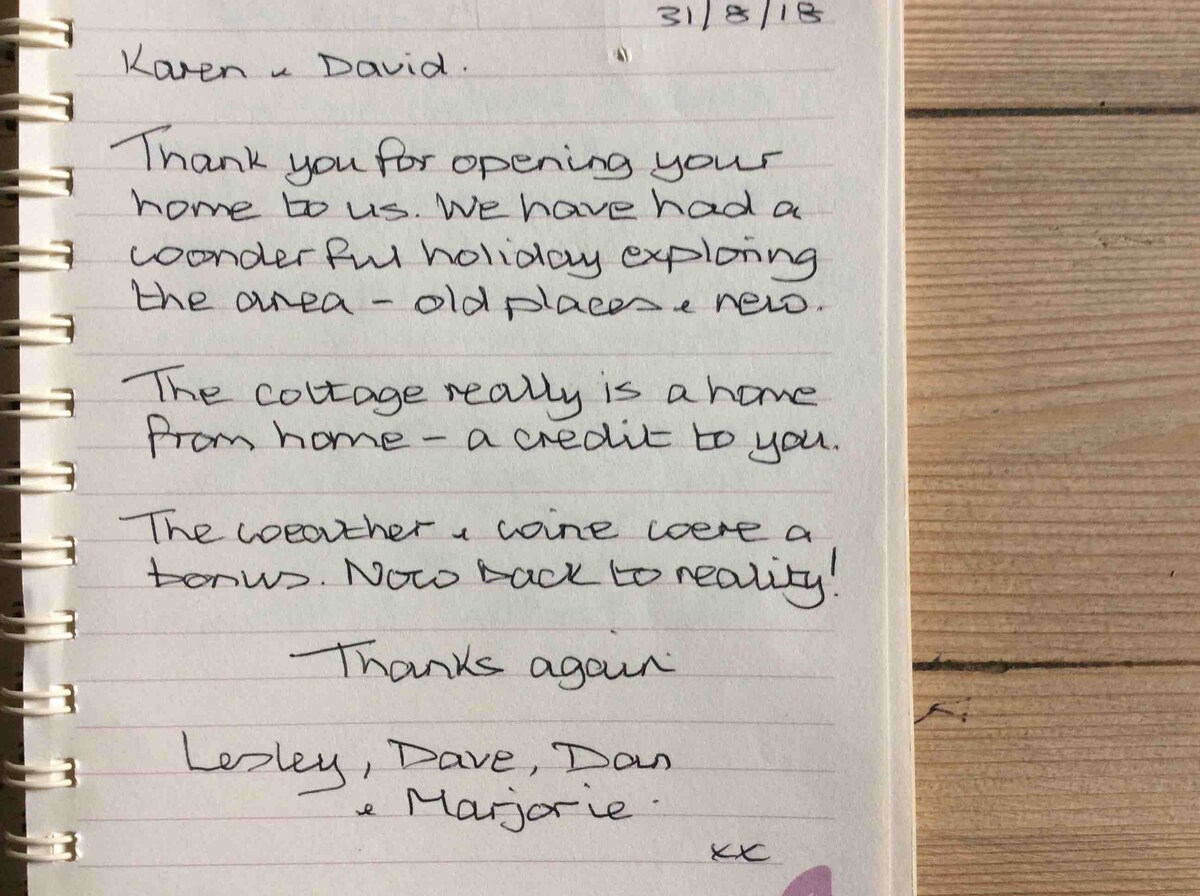 31/8/18
Karen & David.
Thank you for opening your
home to us. We have had a
wonderful holiday exploring
the area - old places & new.
The cottage really is a home
from home - a credit to you.
The weather & wine were a
bonus. Now back to reality!
Thanks again
Lesley, Dave, Dan
& Marjorie.
xx